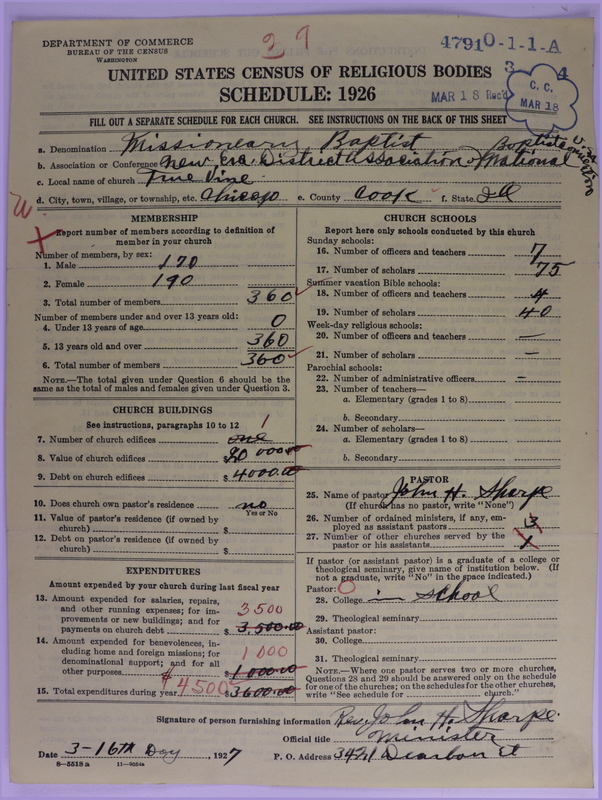 29
47910-1-1-A
DEPARTMENT OF COMMERCE
BUREAU OF THE CENSUS
WASHINGTON
3 4
MAR 18 Rec'd
C. C.
MAR 18
UNITED STATES CENSUS OF RELIGIOUS BODIES
SCHEDULE: 1926
FILL OUT A SEPARATE SCHEDULE FOR EACH CHURCH. SEE INSTRUCTIONS ON THE BACK OF THIS SHEET
a. Denomination Missionary Baptist Baptist
b. Association or Conference New Era District Association of National convention
c. Local name of church True Vine
d. City, town, village, or township, etc. Chicago e. County Cook f. State Ill
MEMBERSHIP
Report number of members according to definition of
member in your church
Number of members, by sex:
1. Male 170
2. Female 190
3. Total number of members 360
Number of members under and over 13 years old:
4. Under 13 years of age 0
5. 13 years old and over 360
6. Total number of members 360
NOTE.—The total given under Question 6 should be the
same as the total of males and females given under Question 3.
CHURCH BUILDINGS
See instructions, paragraphs 10 to 12
7. Number of church edifices one 1
8. Value of church edifices $20000.00
9. Debt on church edifices $4000.00
10. Does church own pastor's residence no
Yes or No
11. Value of pastor's residence (if owned by
church) $
12. Debt on pastor's residence (if owned by
church) $
EXPENDITURES
Amount expended by your church during last fiscal year
13. Amount expended for salaries, repairs,
and other running expenses; for im-
provements or new buildings; and for
payments on church debt $3,500.00 3500
14. Amount expended for benevolences, in-
cluding home and foreign missions; for
denominational support; and for all
other purposes $1000.00 1000
15. Total expenditures during year $3600.00 $4500
CHURCH SCHOOLS
Report here only schools conducted by this church
Sunday schools:
16. Number of officers and teachers 7
17. Number of scholars 75
Summer vacation Bible schools:
18. Number of officers and teachers 4
19. Number of scholars 40
Week-day religious schools:
20. Number of officers and teachers —
21. Number of scholars —
Parochial schools:
22. Number of administrative officers —
23. Number of teachers—
a. Elementary (grades 1 to 8)
b. Secondary
24. Number of scholars—
a. Elementary (grades 1 to 8)
b. Secondary
PASTOR
25. Name of pastor John H. Sharpe
(If church has no pastor, write "None")
26. Number of ordained ministers, if any, em-
ployed as assistant pastors 3
27. Number of other churches served by the
pastor or his assistants
If pastor (or assistant pastor) is a graduate of a college or
theological seminary, give name of institution below. (If
not a graduate, write "No" in the space indicated.)
Pastor: 0
28. College in school
29. Theological seminary
Assistant pastor:
30. College
31. Theological seminary
NOTE.—Where one pastor serves two or more churches,
Questions 28 and 29 should be answered only on the schedule
for one of the churches; on the schedules for the other churches,
write "See schedule for church."
Signature of person furnishing information Rev. John H. Sharpe
Official title Minister
Date 3-16th Day, 1927 P. O. Address Dearbon St
8-5518 a 11-9034a